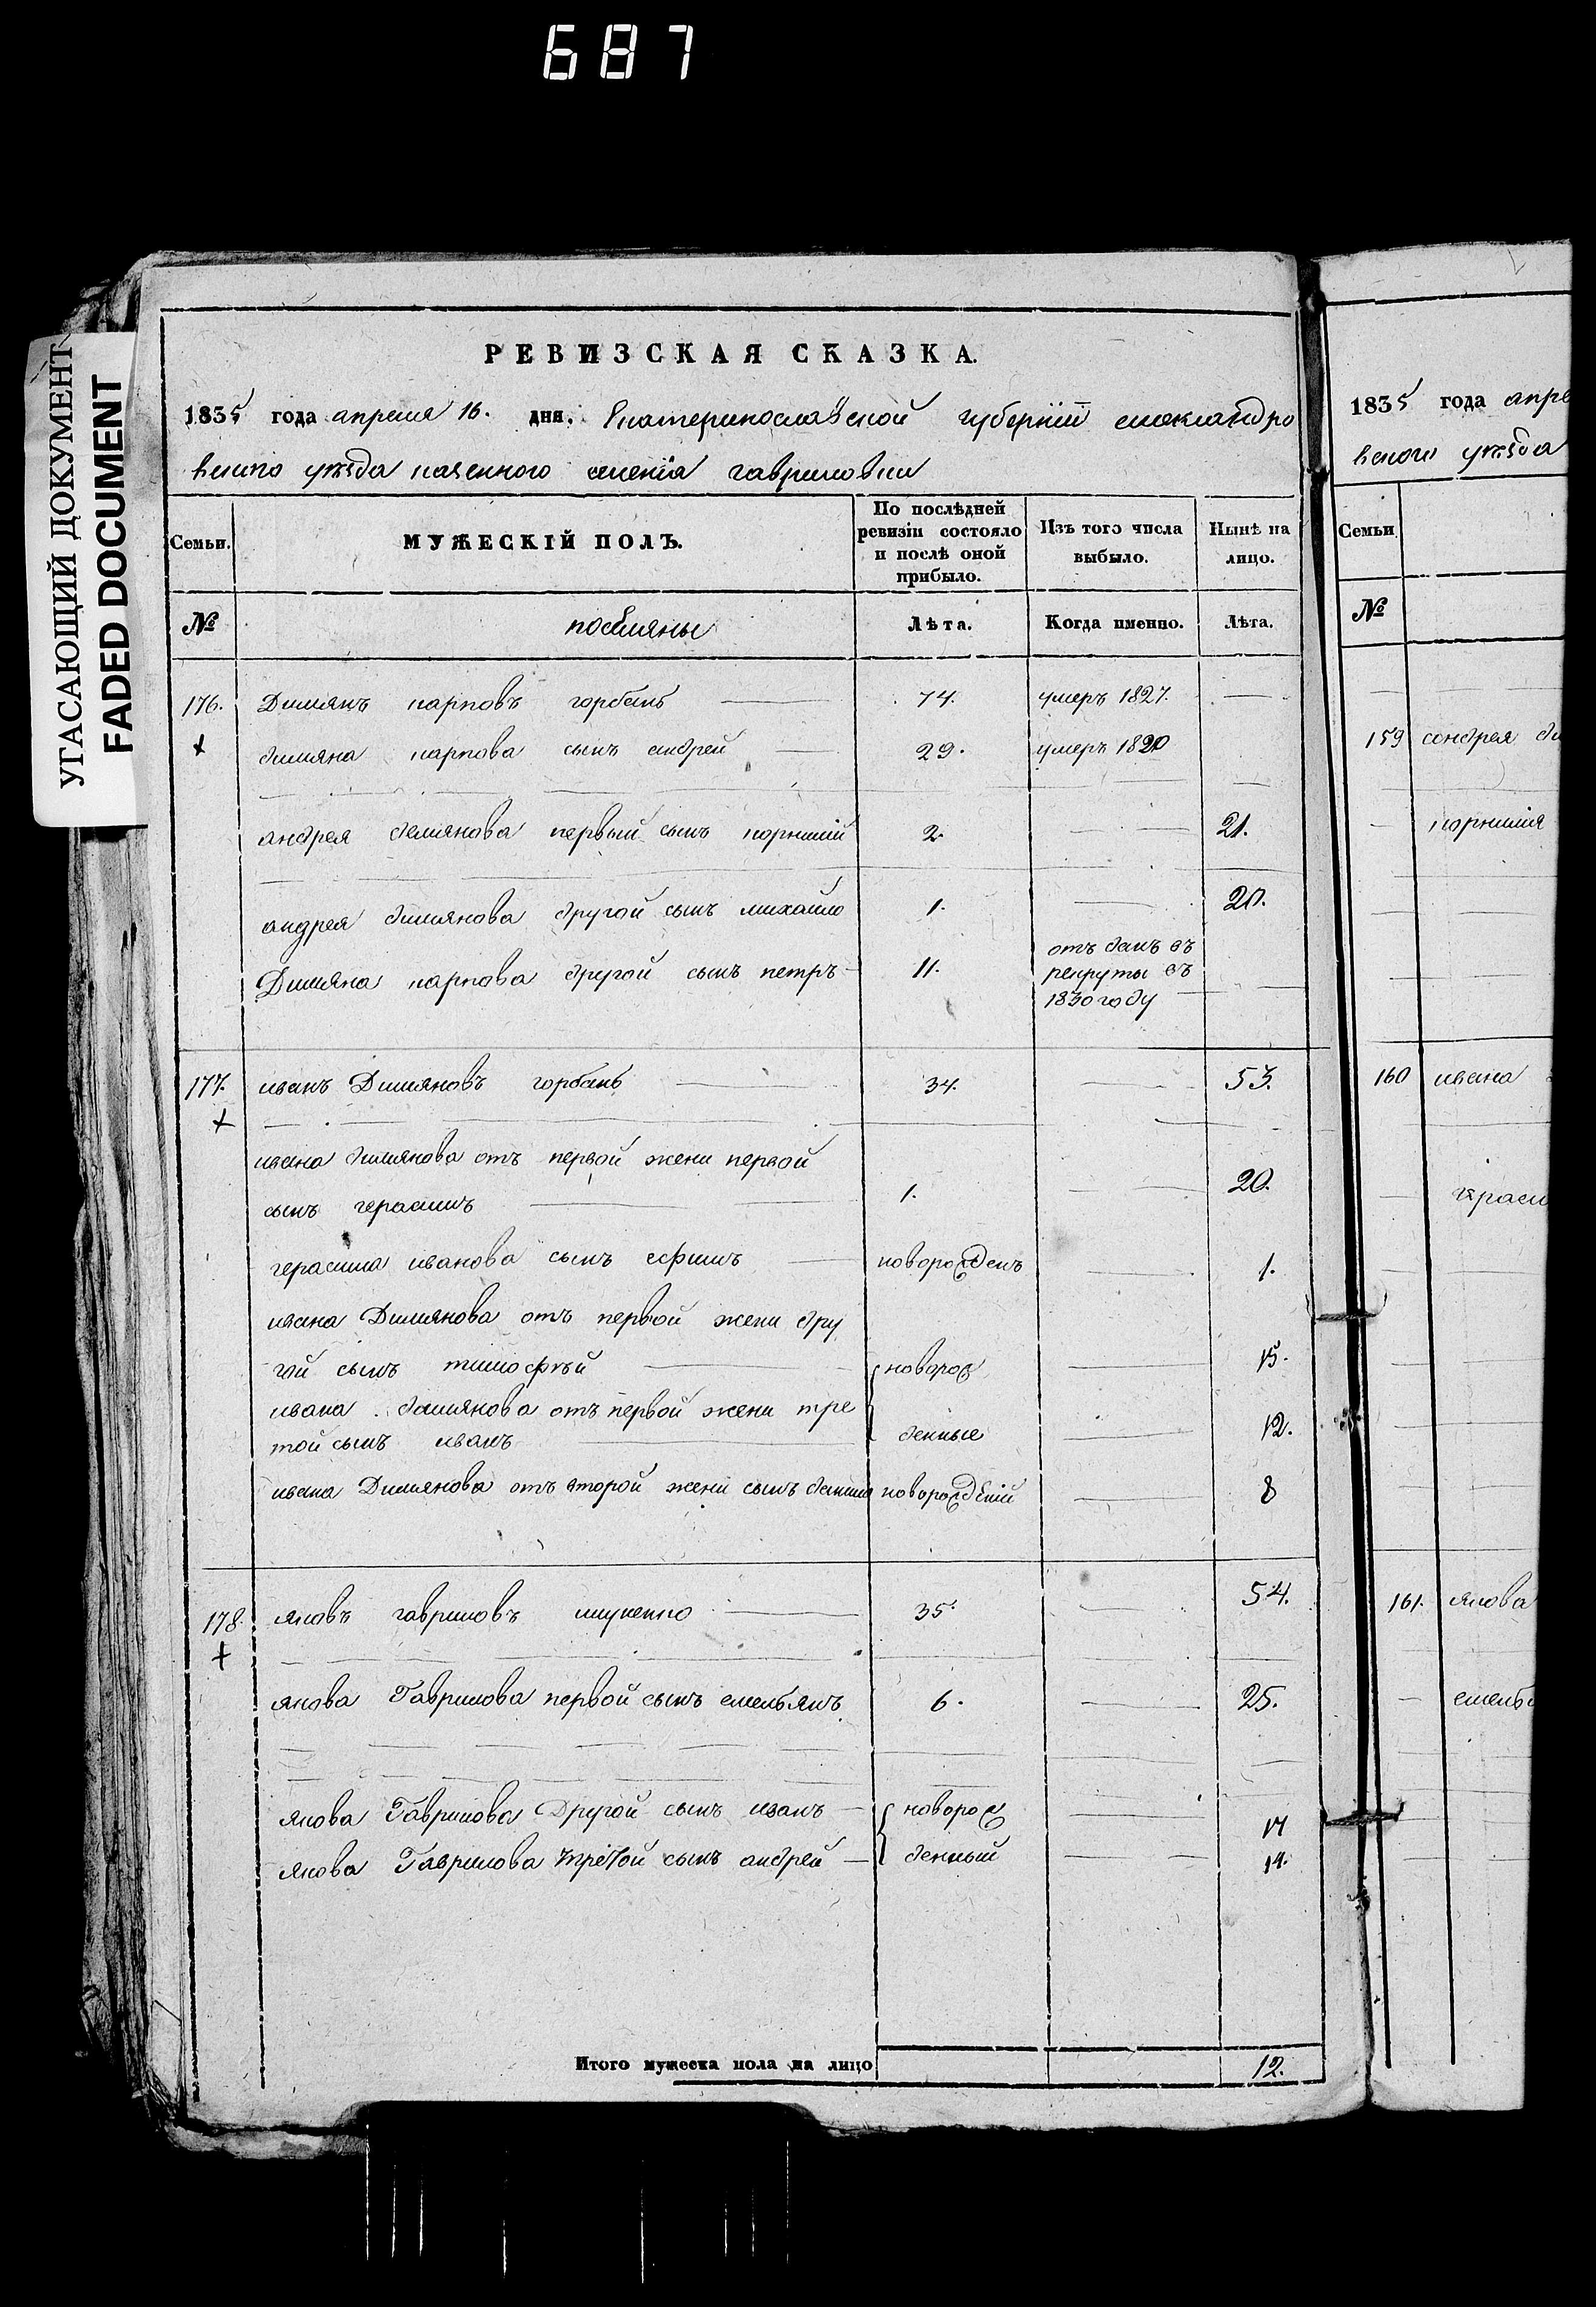 687
УГАСАЮЩИЙ ДОКУМЕНТ
FADED DOCUMENT
РЕВИЗСКАЯ СКАЗКА.
1835 года апреля 16. дня. Екатеринославской губерніи александро
вского уѣзда казенного селенія гавриловки
Семьи.
МУЖЕСКІЙ ПОЛЪ.
По послѣдней
ревизіи состояло
и послѣ оной
прибыло.
Изъ того числа
выбыло.
Нынѣ на
лицо.
№
поселяны
Лѣта.
Когда именно.
Лѣта.
176. Димянъ карповъ горбань 74. умеръ 1827.
димяна карпова сынъ андрей 29. умеръ 1820
андрея демянова первый сынъ корнилій 2. 21.
андрея димянова другой сынъ михайло 1. 20.
Димяна карпова другой сынъ петръ 11. отъ данъ въ
рекруты въ
1830 году
177. иванъ Димяновъ горбань 34. 53.
ивана димянова отъ первой жени первой
сынъ герасимъ 1. 20.
герасима иванова сынъ ефимъ новорожденъ 1.
ивана Димянова отъ первой жени дру
гой сынъ тимофѣй новорож 15.
ивана димянова отъ первой жени тре
той сынъ иванъ денные 12.
ивана Димянова отъ второй жени сынъ данило новорожденій 8
178. яковъ гавриловъ 35. 54.
якова Гаврилова первой сынъ емельянъ 6. 25.
якова Гаврилова Другой сынъ иванъ новорож 17
якова Гаврилова третой сынъ андрей денный 14.
Итого мужеска пола на лицо 12.
1835 года апре
вского уѣзда
Семьи
№
159 андрея ди
корнилія
160 ивана
гераси
161. якова
емелья